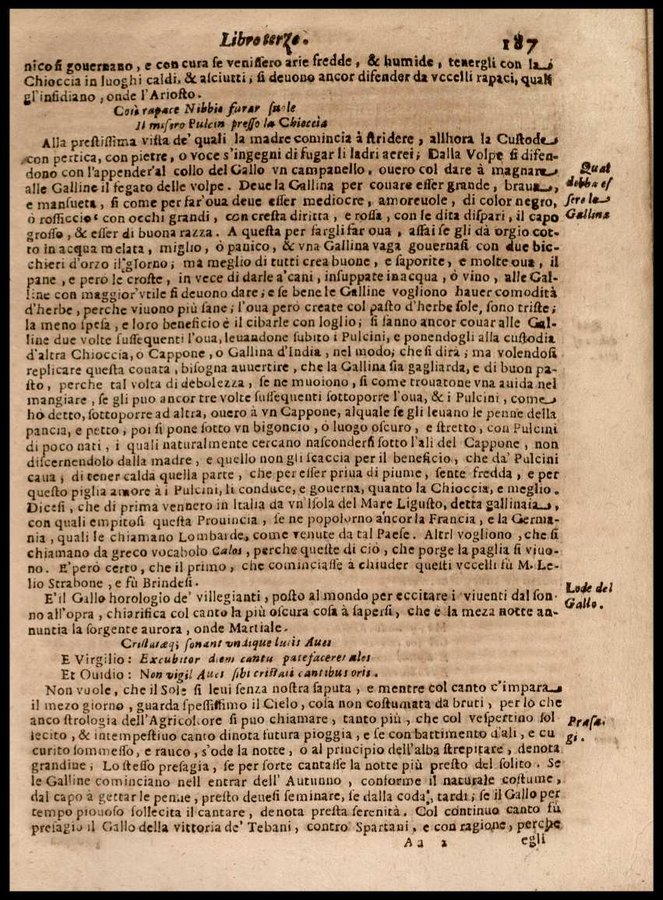 Libro terzo. 187
nico si gouernano, e con cura se venissero arie fredde, & humide, tenergli con la
Chioccia in luoghi caldi, & asciutti; si deuono ancor difender da vccelli rapaci, quali
gl'insidiano, onde l'Ariosto.
Così rapace Nibbio furar suole
Il misero Pulcin presso la Chioccia
Alla prestissima vista de' quali la madre comincia à stridere, allhora la Custode
con pertica, con pietre, o voce s'ingegni di fugar li ladri aerei; Dalla Volpe si difen-
dono con l'appender'al collo del Gallo vn campanello, ouero col dare à magnare
alle Galline il fegato delle volpe. Deue la Gallina per couare esser grande, braua,
e mansueta, si come per far'oua deue esser mediocre, amoreuole, di color negro,
ò rossiccio con occhi grandi, con cresta diritta, e rossa, con le dita dispari, il capo
grosso, & esser di buona razza. A questa per fargli far oua, assai se gli dà orgio cot-
to in acqua melata, miglio, ò panico, & vna Gallina vaga gouernasi con due bic-
chieri d'orzo il giorno; ma meglio di tutti crea buone, e saporite, e molte oua, il
pane, e però le croste, in vece di darle a'cani, insuppate in acqua, ò vino, alle Gal-
line con maggior'vtile si deuono dare; e se bene le Galline vogliono hauer comodità
d'herbe, perche viuono più sane; l'oua però create col pasto d'herbe sole, sono triste;
la meno spesa, e loro beneficio è il cibarle con loglio; si fanno ancor couar alle Gal-
line due volte sussequenti l'oua, leuandone subito i Pulcini, e ponendogli alla custodia
d'altra Chioccia, o Cappone, o Gallina d'India, nel modo, che si dira; ma volendosi
replicare questa couata, bisogna auuertire, che la Gallina sia gagliarda, e di buon pa-
sto, perche tal volta di debolezza, se ne muoiono, si come trouatone vna auida nel
mangiare, se gli puo ancor tre volte sussequenti sottoporre l'oua, & i Pulcini, come
ho detto, sottoporre ad altra, ouero à vn Cappone, al quale si gli leuano le penne della
pancia, e petto; poi si pone sotto vn bigoncio, ò luogo oscuro, e stretto, con Pulcini
di poco nati, i quali naturalmente cercano nascondersi sotto l'ali del Cappone, non
discernendolo dalla madre, e quello non gli scaccia per il beneficio, che da' Pulcini
caua; di tener calda quella parte, che per esser priua di piume, sente fredda, e per
questo piglia amore à i Pulcini, li conduce, e gouerna, quanto la Chioccia, e meglio.
Dicesi, che di prima vennero in Italia da vn'Isola del Mare Ligusto, detta gallinaia,
con quali empitosi questa Prouincia, se ne popolorno ancor la Francia, e la Germa-
nia, quali le chiamano Lombarde, come venute da tal Paese. Altri vogliono, che si
chiamano da greco vocabolo Galos, perche queste di ciò, che porge la paglia si viuo-
no. E'però certo, che il primo, che cominciasse à chiuder questi vccelli fù M. Le-
lio Strabone, e fù Brindesi.
E'il Gallo horologio de' villegianti, posto al mondo per eccitare i viuenti dal son-
no all'opra, chiarifica col canto la più oscura cosa à sapersi, che e la meza notte an-
nuntia la sorgente aurora, onde Martiale.
Cristatæqi sonant vndique lucis Aues
E Virgilio: Excubitor diem cantu patefaceret ales
Et Ouidio: Non vigil Aues sibi cristati cantibus oris.
Non vuole, che il Sole si leui senza nostra saputa, e mentre col canto c'impara
il mezo giorno, guarda spessissimo il Cielo, cosa non costumata da bruti, per lo che
anco strologia dell'Agricoltore si puo chiamare, tanto più, che col vespertino sol
lecito, & intempestiuo canto dinota futura pioggia, e se con battimento d'ali, e cu
curito sommesso, e rauco, s'ode la notte, o al principio dell'alba strepitare, denota
grandine; Lo stesso presagia, se per sorte cantasse la notte più presto del solito. Se
le Galline cominciano nell entrar dell' Autunno, conforme il naturale costume,
dal capo à gettar le penne, presto deuesi seminare, se dalla coda, tardi; se il Gallo per
tempo piouoso sollecita il cantare, denota presta serenità. Col continuo canto fù
presagio il Gallo della vittoria de' Tebani, contro Spartani, e con ragione, perche
Aa 2 egli
Qual
debba es
sere la
Gallina
Lode del
Gallo.
Presa-
gi.